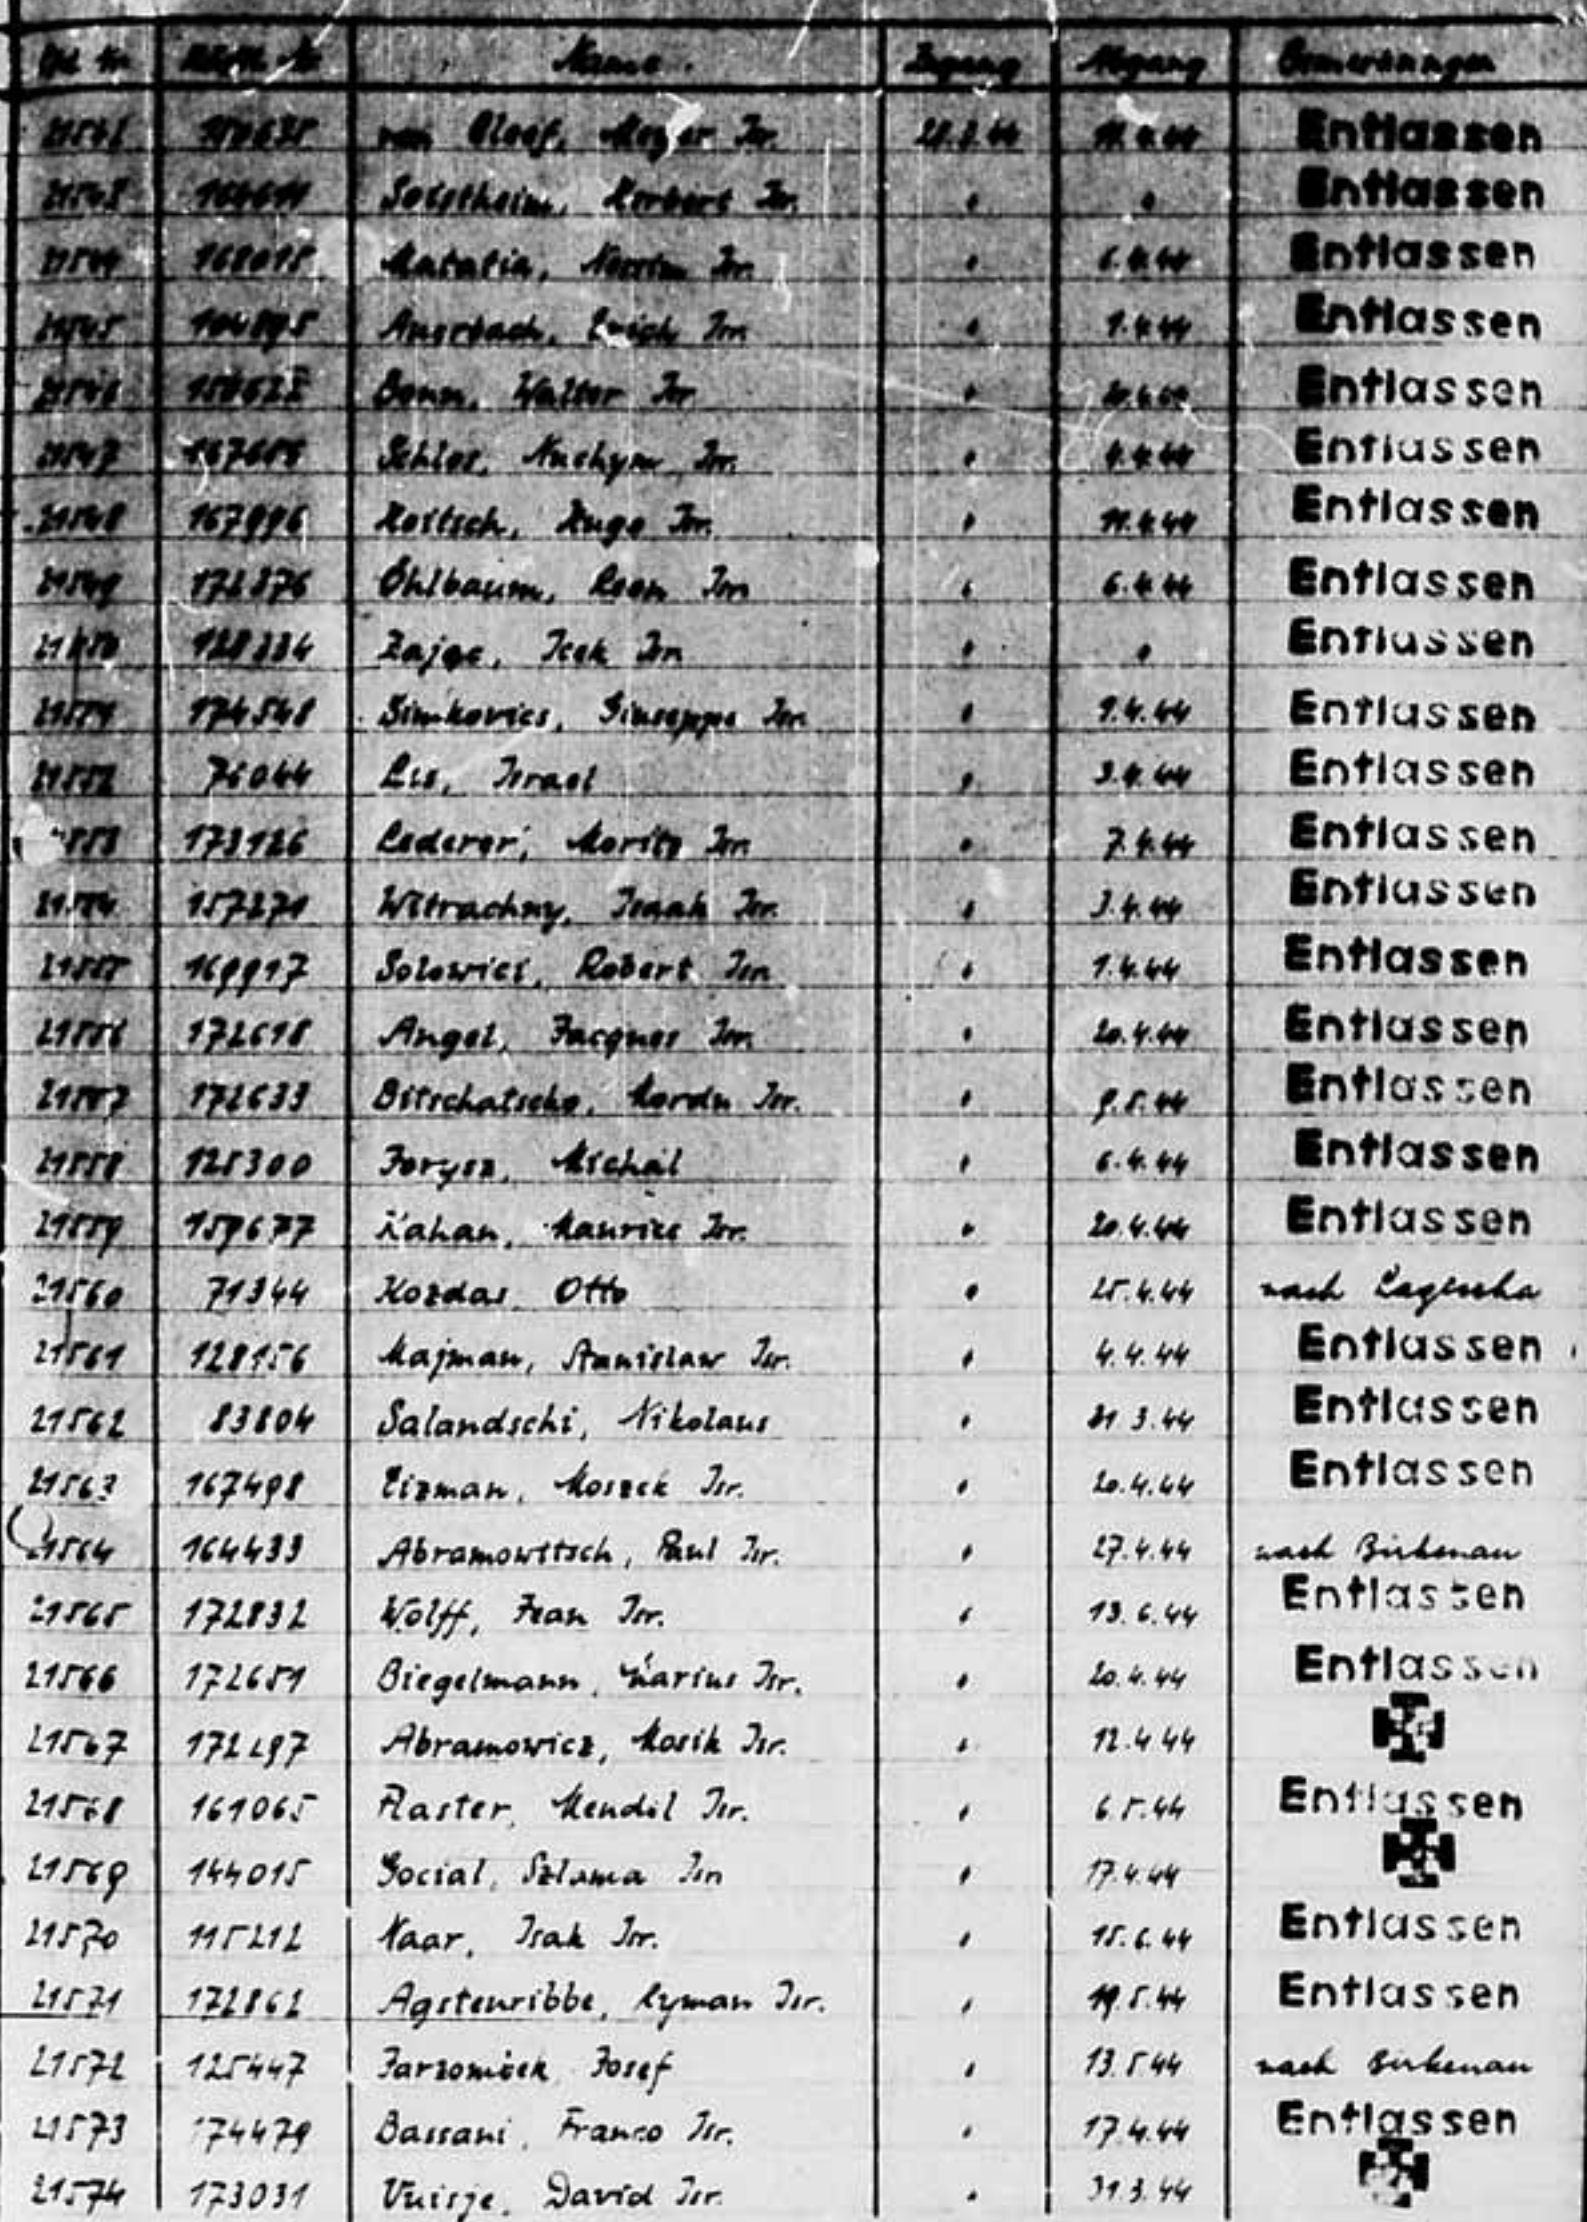 Lfd. Nr. Häftl. Nr. Name Zugang Abgang Bemerkungen
21542 van Cleef, Meyer Isr. 28.3.44 11.4.44 Entlassen
21543 Herbert Isr. " " Entlassen
21544 168018 Matatia, Nissim Isr. " 6.4.44 Entlassen
21545 Auerbach, Erich Isr. " 1.4.44 Entlassen
21546 Bonn, Walter Isr. " 20.4.44 Entlassen
21547 Schlos, Nuchym Isr. " 4.4.44 Entlassen
21548 167996 Hugo Isr. " 11.4.44 Entlassen
21549 172376 Öhlbaum, Leon Isr. " 6.4.44 Entlassen
21550 128334 Zając, Icek Isr. " " Entlassen
21551 174548 Simkovics, Giuseppe Isr. " 1.4.44 Entlassen
21552 76044 Lis, Israel " 3.4.44 Entlassen
21553 173126 Lederer, Moritz Isr. " 7.4.44 Entlassen
21554 157271 Witrachny, Isaak Isr. " 3.4.44 Entlassen
21555 169917 Solowici, Robert Isr. " 1.4.44 Entlassen
21556 172618 Angel, Jacques Isr. " 20.4.44 Entlassen
21557 172633 Bitschatscho, Mordu Isr. " 9.5.44 Entlassen
21558 125300 Forysz, Michal " 6.4.44 Entlassen
21559 159677 Kahan, Maurice Isr. " 20.4.44 Entlassen
21560 71344 Kozdas Otto " 25.4.44 nach Lagischa
21561 128156 Majman, Stanislaw Isr. " 4.4.44 Entlassen
21562 83804 Salandschi, Nikolaus " 31.3.44 Entlassen
21563 167498 Cizman, Moszek Isr. " 20.4.44 Entlassen
21564 164433 Abramowitsch, Paul Isr. " 27.4.44 nach Birkenau
21565 172832 Wolff, Jean Isr. " 13.6.44 Entlassen
21566 172651 Biegelmann, Marius Isr. " 20.4.44 Entlassen
21567 172297 Abramowicz, Mosik Isr. " 12.4.44
21568 161065 Flaster, Mendil Isr. " 6.5.44 Entlassen
21569 144015 Social, Szlama Isr. " 17.4.44
21570 115212 Naar, Isak Isr. " 15.6.44 Entlassen
21571 172862 Agstenribbe, Hyman Isr. " 19.5.44 Entlassen
21572 125447 Jarzombek Josef " 13.5.44 nach Birkenau
21573 174479 Bassani, Franco Isr. " 17.4.44 Entlassen
21574 173031 Vuisje, David Isr. " 31.3.44